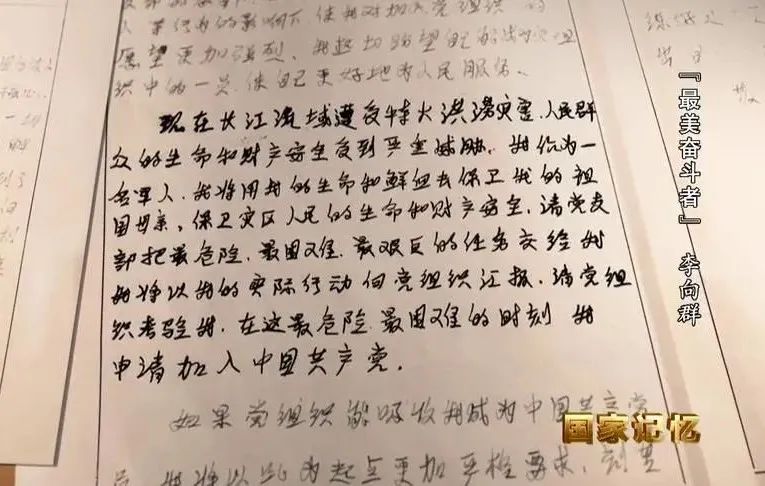 愿望更加强烈，我迫切盼望自己能成为党组
织中的一员，使自己更好地为人民服务。
现在长江流域遭受特大洪涝灾害，人民群
众的生命和财产安全受到严重威胁，我作为一
名军人，我将用我的生命和鲜血去保卫我的祖
国母亲，保卫灾区人民的生命和财产安全，请党支
部把最危险、最困难、最艰巨的任务交给我
我将以我的实际行动向党组织汇报，请党组
织考验我，在这最危险、最困难的时刻 我
申请加入中国共产党。
如果党组织能吸收我成为中国共产党
员，我将以此为起点更加严格要求，刻苦
『最美奋斗者』 李向群
国家记忆